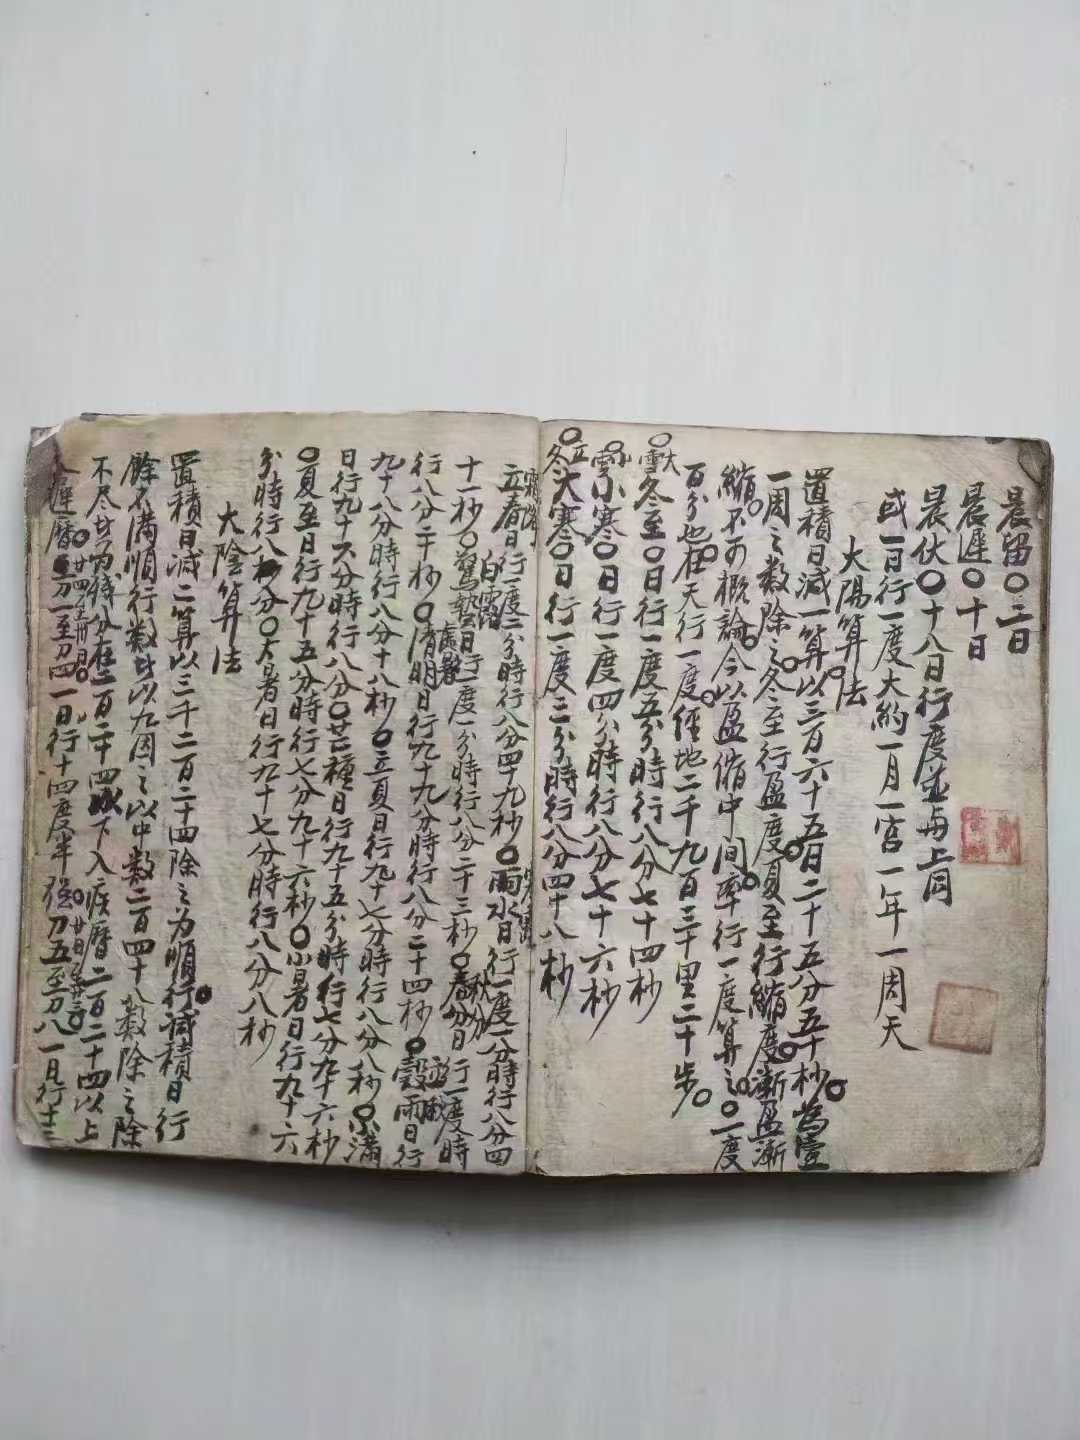 晨留〇二日
晨遲〇十日
晨伏〇十八日行度並与上同
或一日行一度大約一月一宮一年一周天
太陽算法
置積日減一算以三百六十五日二十五分五十秒為壹
一周之数除之冬至行盈度夏至行縮度漸盈漸
縮不可概論今以盈縮中间率行一度算之〇一度
百分也在天行一度經地二千九百三十里二十步
〇大雪冬至〇日行一度五分時行八分七十四秒
〇小雪小寒〇日行一度四分時行八分七十六秒
〇立冬大寒〇日行一度三分時行八分四十八秒
霜降
立春日行一度二分時行八分四十九秒〇雨水日行一度二分時行八分四
寒露
十一秒〇驚蟄日行一度一分時行八分二十三秒〇春分日行一度時
白露
秋分
行八分二十秒〇清明日行九十九分時行八分二十四秒〇穀雨日行
處暑
九十八分時行八分十八秒〇立夏日行九十七分時行八分八秒〇小满
日行九十六分時行八分〇芒種日行九十五分時行七分九十六秒
〇夏至日行九十五分時行七分九十六秒〇小暑日行九十六
分時行八分〇大暑日行九十七分時行八分八秒
太陰算法
置積日減二算以三千二百二十四除之為順行減積日行
餘不满順行数時以九因之以中数二百四十八数除之除
不尽時為残分在二百二十四以下入疾曆二百二十四以上
入遲曆初一至初四一日行十四度半强初五至初八一日行十三